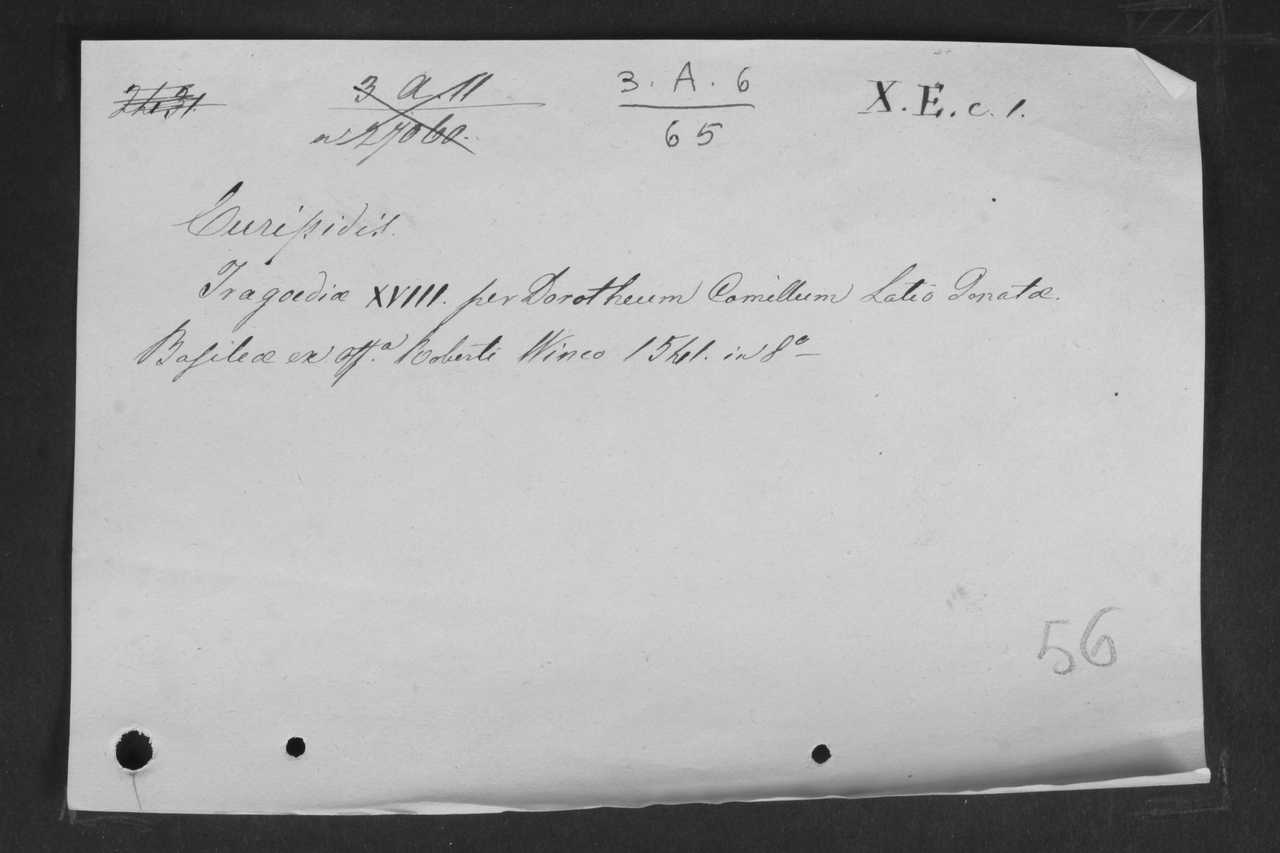 3 A 11 3. A. 6 X. E. c. 1.
n° 27060. 65
Euripidis.
Tragoediæ XVIII. per Dorotheum Camillum Latio Donatæ.
Basileæ ex off.ª Roberti Winco 1541. in 8°
56